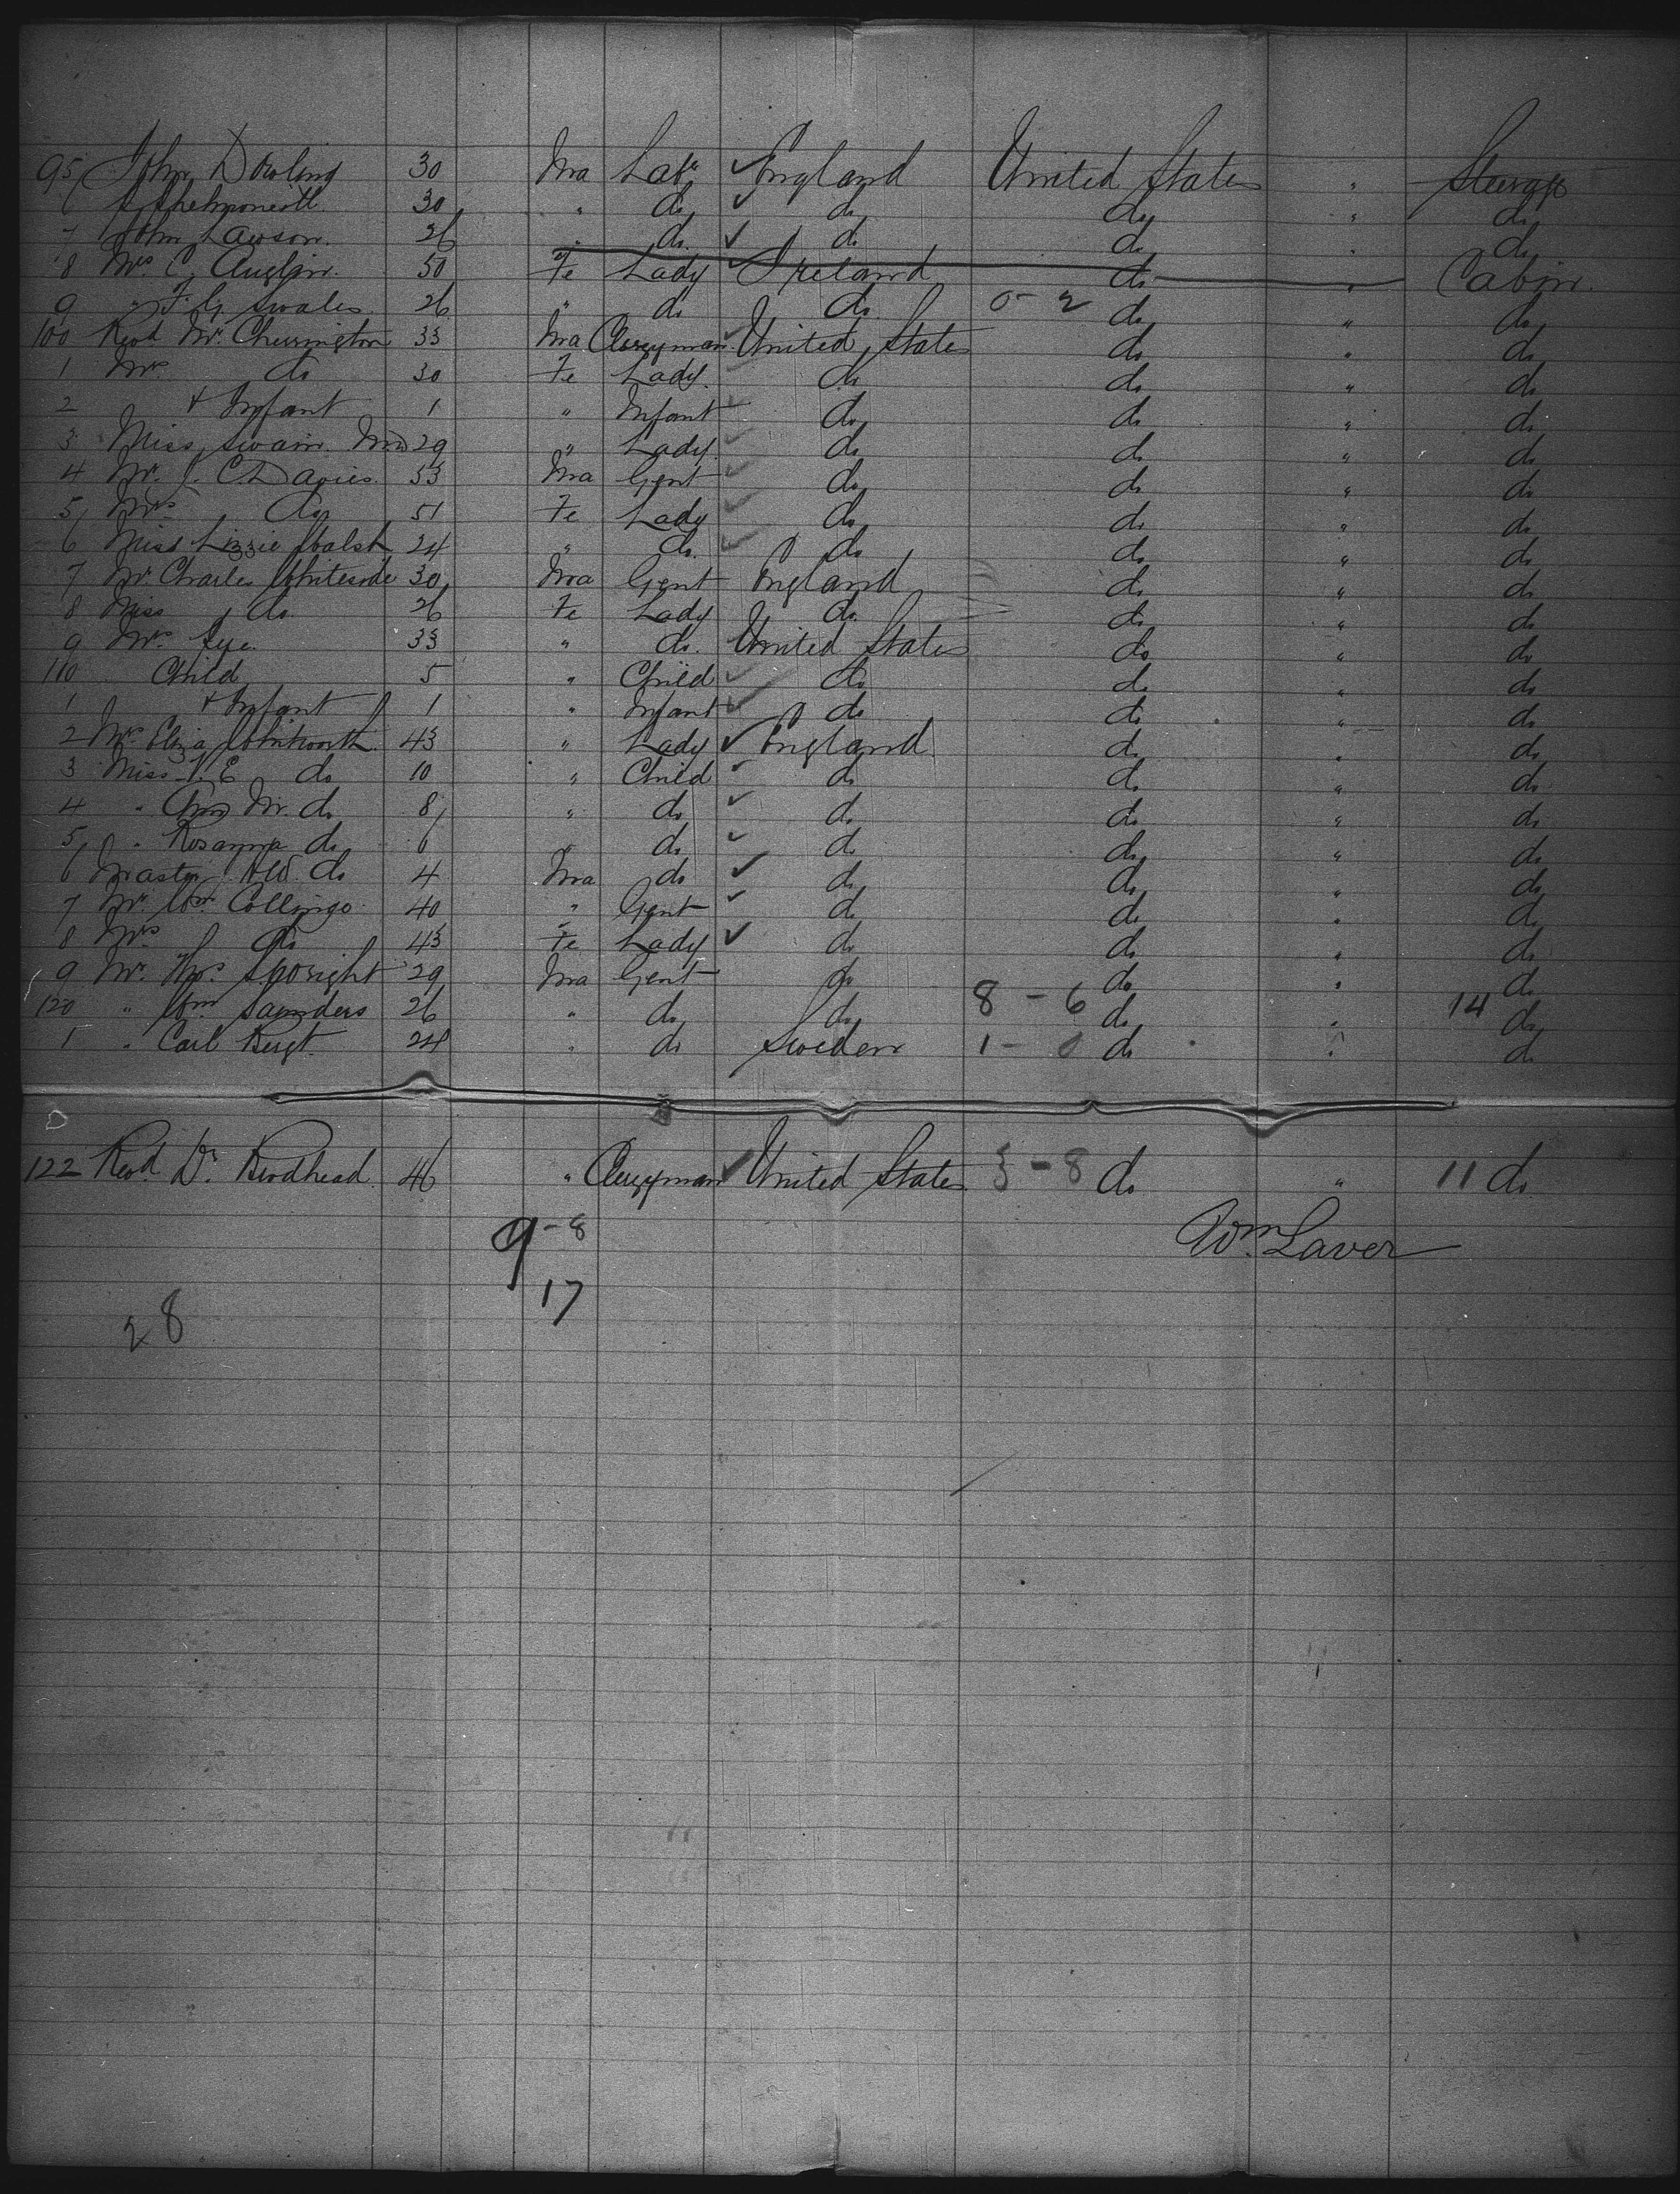 95 John Dowling 30 Ma Labr ✓ England United States " Steerage
6 30 " do ✓ do do " do
7 John Lawson 26 " do ✓ do do " do
8 Mrs C. Anglin 50 Fe Lady ✓ Ireland do " Cabin
9 " F. G. Swales 26 " do do 0-2 do " do
100 Revd Mr. Cherrington 33 Ma Clergyman United States do " do
1 Mrs do 30 Fe Lady do do " do
2 + Infant 1 " Infant do do " do
3 Miss Swain 29 " Lady do do " do
4 Mr. J. C. Davies 53 Ma Gent do do " do
5 Mrs do 51 Fe Lady do do " do
6 Miss Lizzie Walsh 24 " do do do " do
7 Mr. Charles Whiteside 30 Ma Gent England do " do
8 Miss do 26 Fe Lady do do " do
9 Mrs 33 " do United States do " do
110 Child 5 " Child do do " do
1 + Infant 1 " Infant do do " do
2 Mrs Eliza Whitworth 43 " Lady ✓ England do " do
3 Miss E do 10 " Child ✓ do do " do
4 " M. do 8 " do ✓ do do " do
5 " Rosanna do 6 " do ✓ do do " do
6 Master do 4 Ma do ✓ do do " do
7 Mr Wm Collinge 40 " Gent ✓ do do " do
8 Mrs do 43 Fe Lady ✓ do do " do
9 Mr. Thos. Spright 29 Ma Gent do do " do
120 " Wm Saunders 26 " do do 8-6 do " 14 do
1 " Carl 24 " do Sweden 1-0 do " do
122 Revd Dr. Brodhead 46 " Clergyman ✓ United States 3-8 do " 11 do
9-8
Wm Laver
17
28